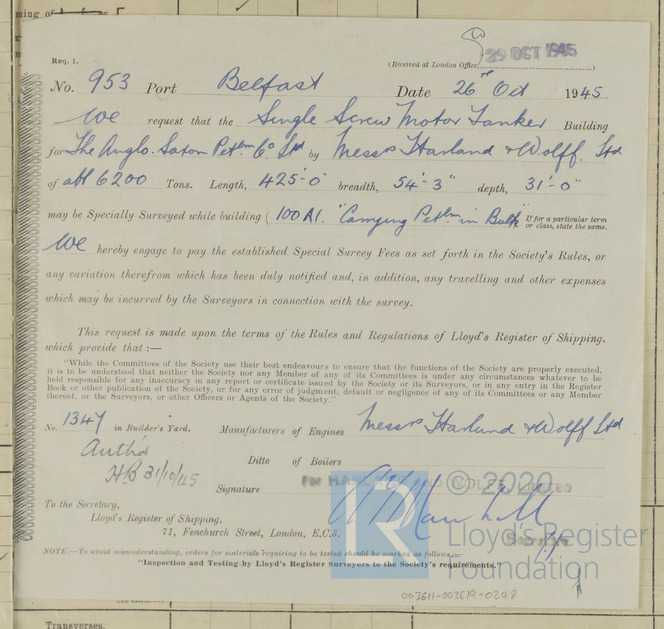 ming of
Req. 1.
(Received at London Office
29 OCT 1945
No. 953 Port Belfast Date 26th Oct 1945
We request that the Single Screw Motor Tanker Building
for The Anglo. Saxon Petlm Co Ltd by Messrs Harland & Wolff. Ltd
of abt 6200 Tons. Length, 425'-0" breadth, 54'-3" depth, 31'-0"
may be Specially Surveyed while building ( 100 A1. "Carrying Petlm in Bulk" If for a particular term
or class, state the same.
We hereby engage to pay the established Special Survey Fees as set forth in the Society's Rules, or
any variation therefrom which has been duly notified and, in addition, any travelling and other expenses
which may be incurred by the Surveyors in connection with the survey.
This request is made upon the terms of the Rules and Regulations of Lloyd's Register of Shipping,
which provide that :—
"While the Committees of the Society use their best endeavours to ensure that the functions of the Society are properly executed,
it is to be understood that neither the Society nor any Member of any of its Committees is under any circumstances whatever to be
held responsible for any inaccuracy in any report or certificate issued by the Society or its Surveyors, or in any entry in the Register
Book or other publication of the Society, or for any error of judgment, default or negligence of any of its Committees or any Member
thereof, or the Surveyors, or other Officers or Agents of the Society."
No. 1347 in Builder's Yard. Manufacturers of Engines Messrs Harland & Wolff Ltd
Auth'd
HB 31/10/45
Ditto of Boilers
For HARLAND AND WOLFF, LIMITED
© 2020
Signature
To the Secretary,
Lloyd's Register of Shipping,
71, Fenchurch Street, London, E.C.3.
Lloyd's Register
Foundation
NOTE.—To avoid misunderstanding, orders for materials requiring to be tested should be marked as follows—
"Inspection and Testing by Lloyd's Register Surveyors to the Society's requirements."
003611-003619-0248
Transverses.